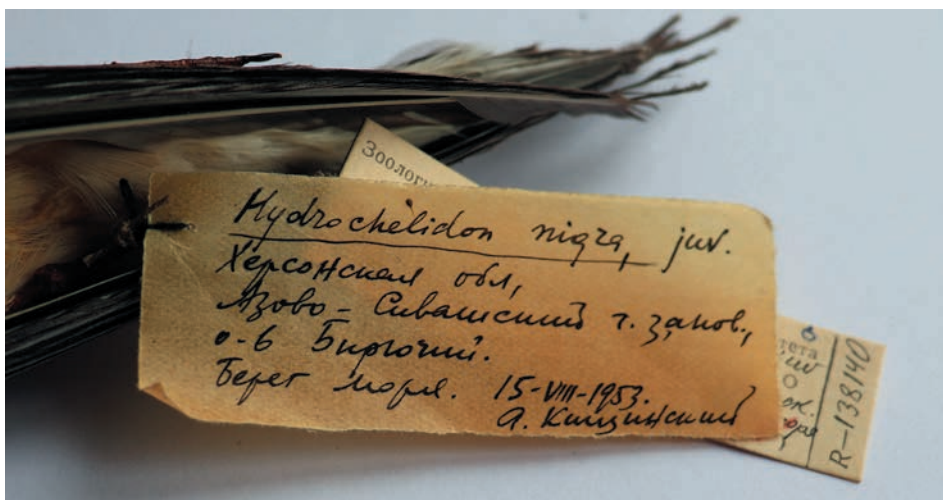 Зоологи
Hydrochelidon nigra, juv.
Херсонская обл,
Азово-Сивашский г. запов.,
о-в Бирючий.
Берег моря. 15-VIII-1953.
А. Кищинский
тета
R-138140